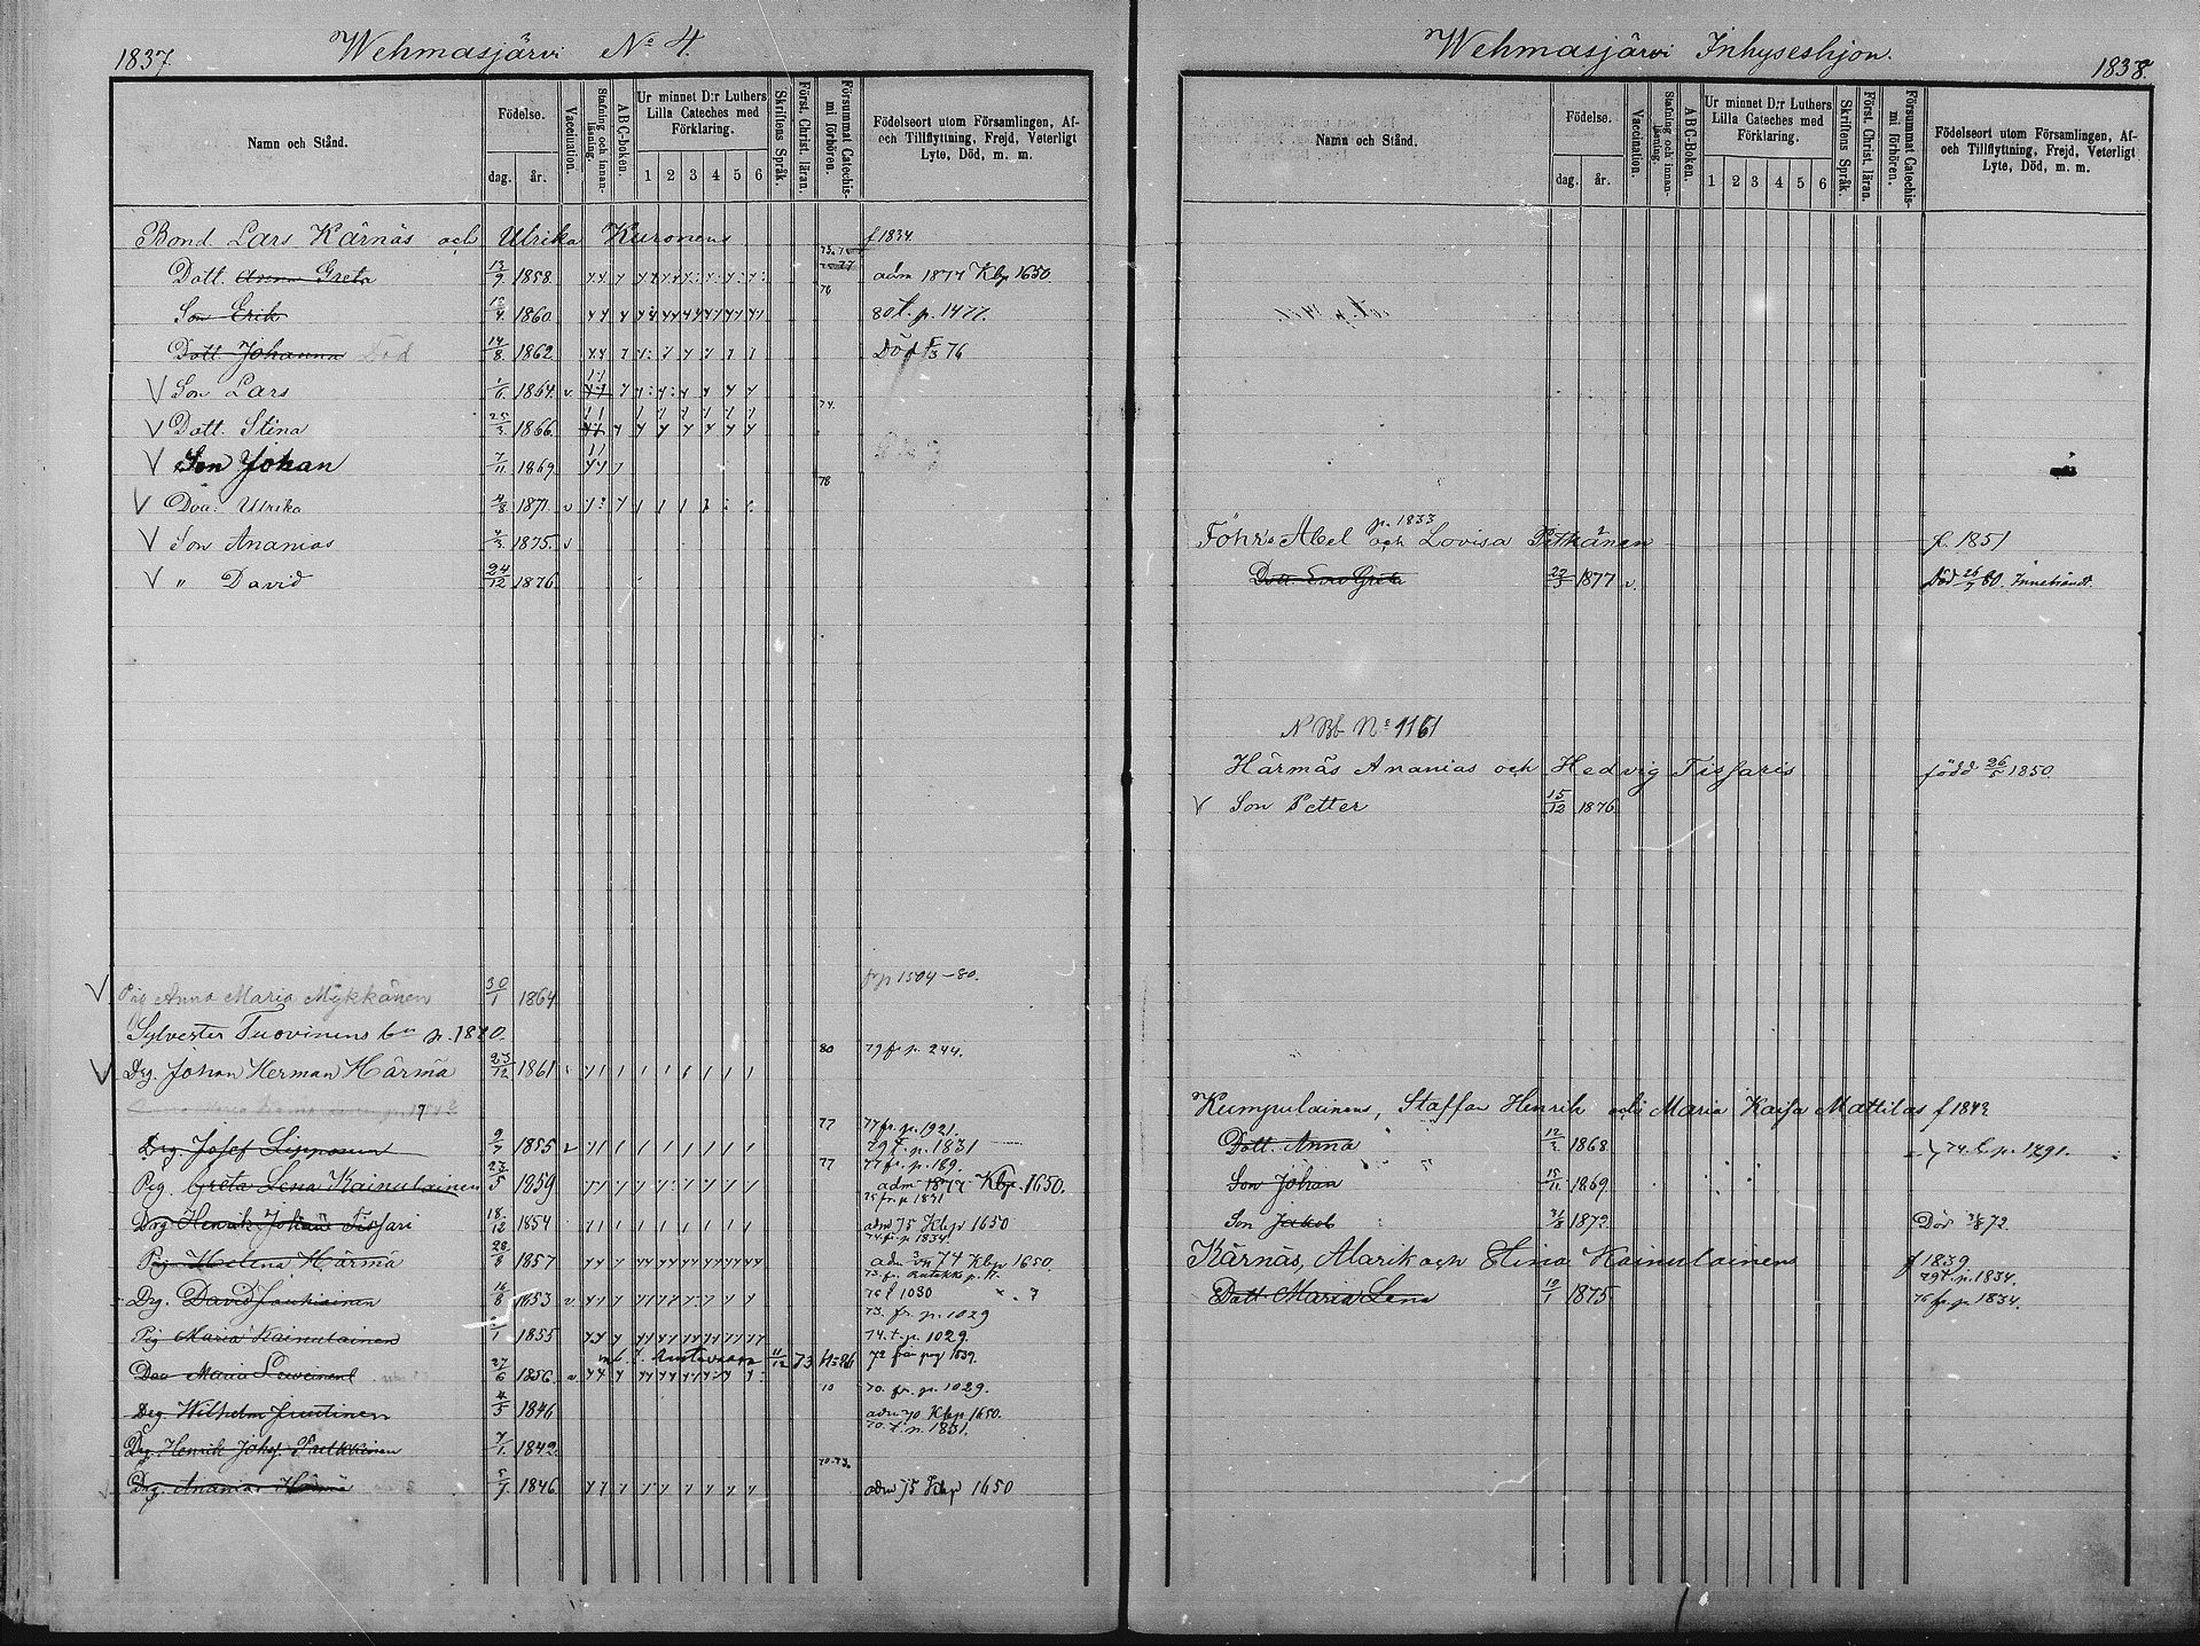 1837.
Wehmasjärvi No 4.
Namn och Stånd.
Födelse.
dag.
år.
Vaccination.
Stafning och innanläsning
ABC-boken.
Ur minnet D:r Luthers Lilla Cateches med Förklaring.
1 2 3 4 5 6
Skriftens Språk.
Först. Christ. läran.
Försummat Catechismi förhören.
Födelseort utom Församlingen, Af- och Tillflyttning, Frejd, Veterligt Lyte, Död, m. m.
Bond. Lars Kärnäs och Ulrika Kuronens f 1834.
Dott. Anna Greta 13/9 1858 77 adm 1877 Kbp 1650.
Son Erik 1860 76 80 t. p. 1477.
Dott Johanna Död 14/8 1862 Död 76
Son Lars 1/6 1864 v.
Dott. Stina 25/3 1866 74.
Son Johan 7/11 1869
Do: Ulrika 4/8 1871 v 78
Son Ananias 1875. v
" David 24/12 1876
Pig Anna Maria Mykkänen 30/1 1864 frp 1504-80.
Sylvester Tuovinens p. 1820.
Drg. Johan Herman Härmä 23/12 1861 80 79 fr p. 244.
Drg. Josef Lipponen 9/7 1855 v 77 77 fr. p. 1921.
79 t. p. 1831
Pig. Greta Lena Kainulainen 23/5 1859 77 77 fr. p. 189.
adm 1877 Kbp. 1650.
Drg Henrik Johan Tissari 18/12 1854 75 fr. p 1831
adm 75 Kbp 1650
Pig Helena Härmä 1857 74 fr p 1834.
adm 74 Kbp 1650
Drg. David 16/8 1853 v. 76 t 1030
Pig Maria Kainulainen 1855 73. fr. p. 1029
74. t. p. 1029.
11/12 73
Maria 27/6 1856 72 från pag 1839.
Drg. Wilhelm 4/5 1846 10 70. fr. p. 1029.
adm 70 Kbp 1650.
Drg. Henrik Johs. 7/1. 1842 70. t. p. 1831.
Drg. Ananias Härmä 5/7 1846 70-73. adm 75 Kbp 1650
Wehmasjärvi Inhyseshjon.
1838.
Namn och Stånd.
Födelse.
dag.
år.
Vaccination.
Stafning och innanläsning.
ABC-Boken.
Ur minnet D:r Luthers Lilla Cateches med Förklaring.
1 2 3 4 5 6
Skriftens Språk.
Först. Christ. läran.
Försummat Catechismi förhören.
Födelseort utom Församlingen, Af- och Tillflyttning, Frejd, Veterligt Lyte, Död, m. m.
p. 1833
Föhr Abel och Lovisa Pitkänen f. 1851
Dott. Eva Greta 1877 v. Död 26/7 80. Innebrändt.
N Bb No 1161
Härmäs Ananias och Hedvig Tissaris född 26/5 1850
Son Petter 15/12 1876
Kumpulainens, Staffan Henrik och Maria Kaisa Mattilas f 1842
Dott. Anna 12/3 1868
Son Johan 15/11 1869
Son Jakob 1872 Död 72.
Kärnäs, Alarik och Stina Kainulainens f 1839
79 t. p. 1834.
Dott Maria Lena 10/1 1875 76 fr. p. 1834.